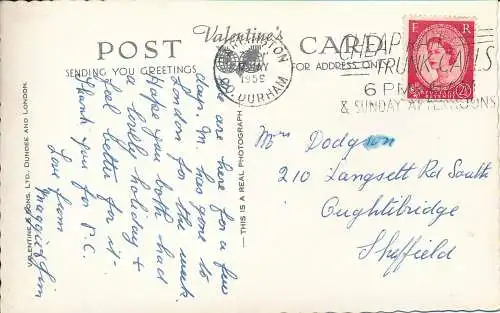 Valentine's
POST CARD
SENDING YOU GREETINGS
FOR ADDRESS ONLY
MAY
1959
CO. DURHAM
CHEAP
TRUNK CALLS
6 PM
& SUNDAY AFTERNOONS
E R
2½D
VALENTINE & SONS, LTD., DUNDEE AND LONDON.
— THIS IS A REAL PHOTOGRAPH —
We are here for a few
days. M. has gone to
London for the week.
Hope you both had
a lovely holiday &
feel better for it -
Thank you for P.C.
Love from
Maggie & Jim
Mrs Dodgson
210 Langsett Rd South
Oughtibridge
Sheffield